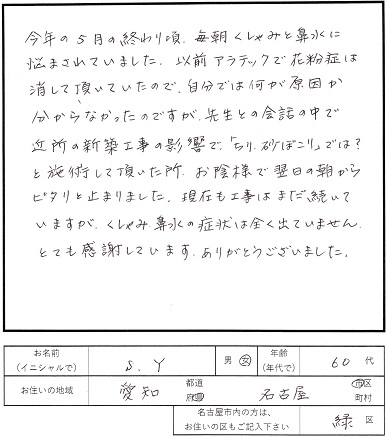 今年の5月の終わり頃、毎朝くしゃみと鼻水に
悩まされていました。以前アラテックで花粉症は
消して頂いていたので、自分では何が原因か
分からなかったのですが、先生との会話の中で
近所の新築工事の影響で、「ちり、砂ぼこり」では?
と施術して頂いた所、お陰様で翌日の朝から
ピタリと止まりました。現在も工事はまだ続いて
いますが、くしゃみ、鼻水の症状は全く出ていません。
とても感謝しています。ありがとうございました。
お名前
(イニシャルで) S.Y 男 女 年齢
(年代で) 60 代
お住いの地域 愛知 都道
府県 名古屋 市区
町村
名古屋市内の方は、
お住いの区もご記入下さい 緑 区